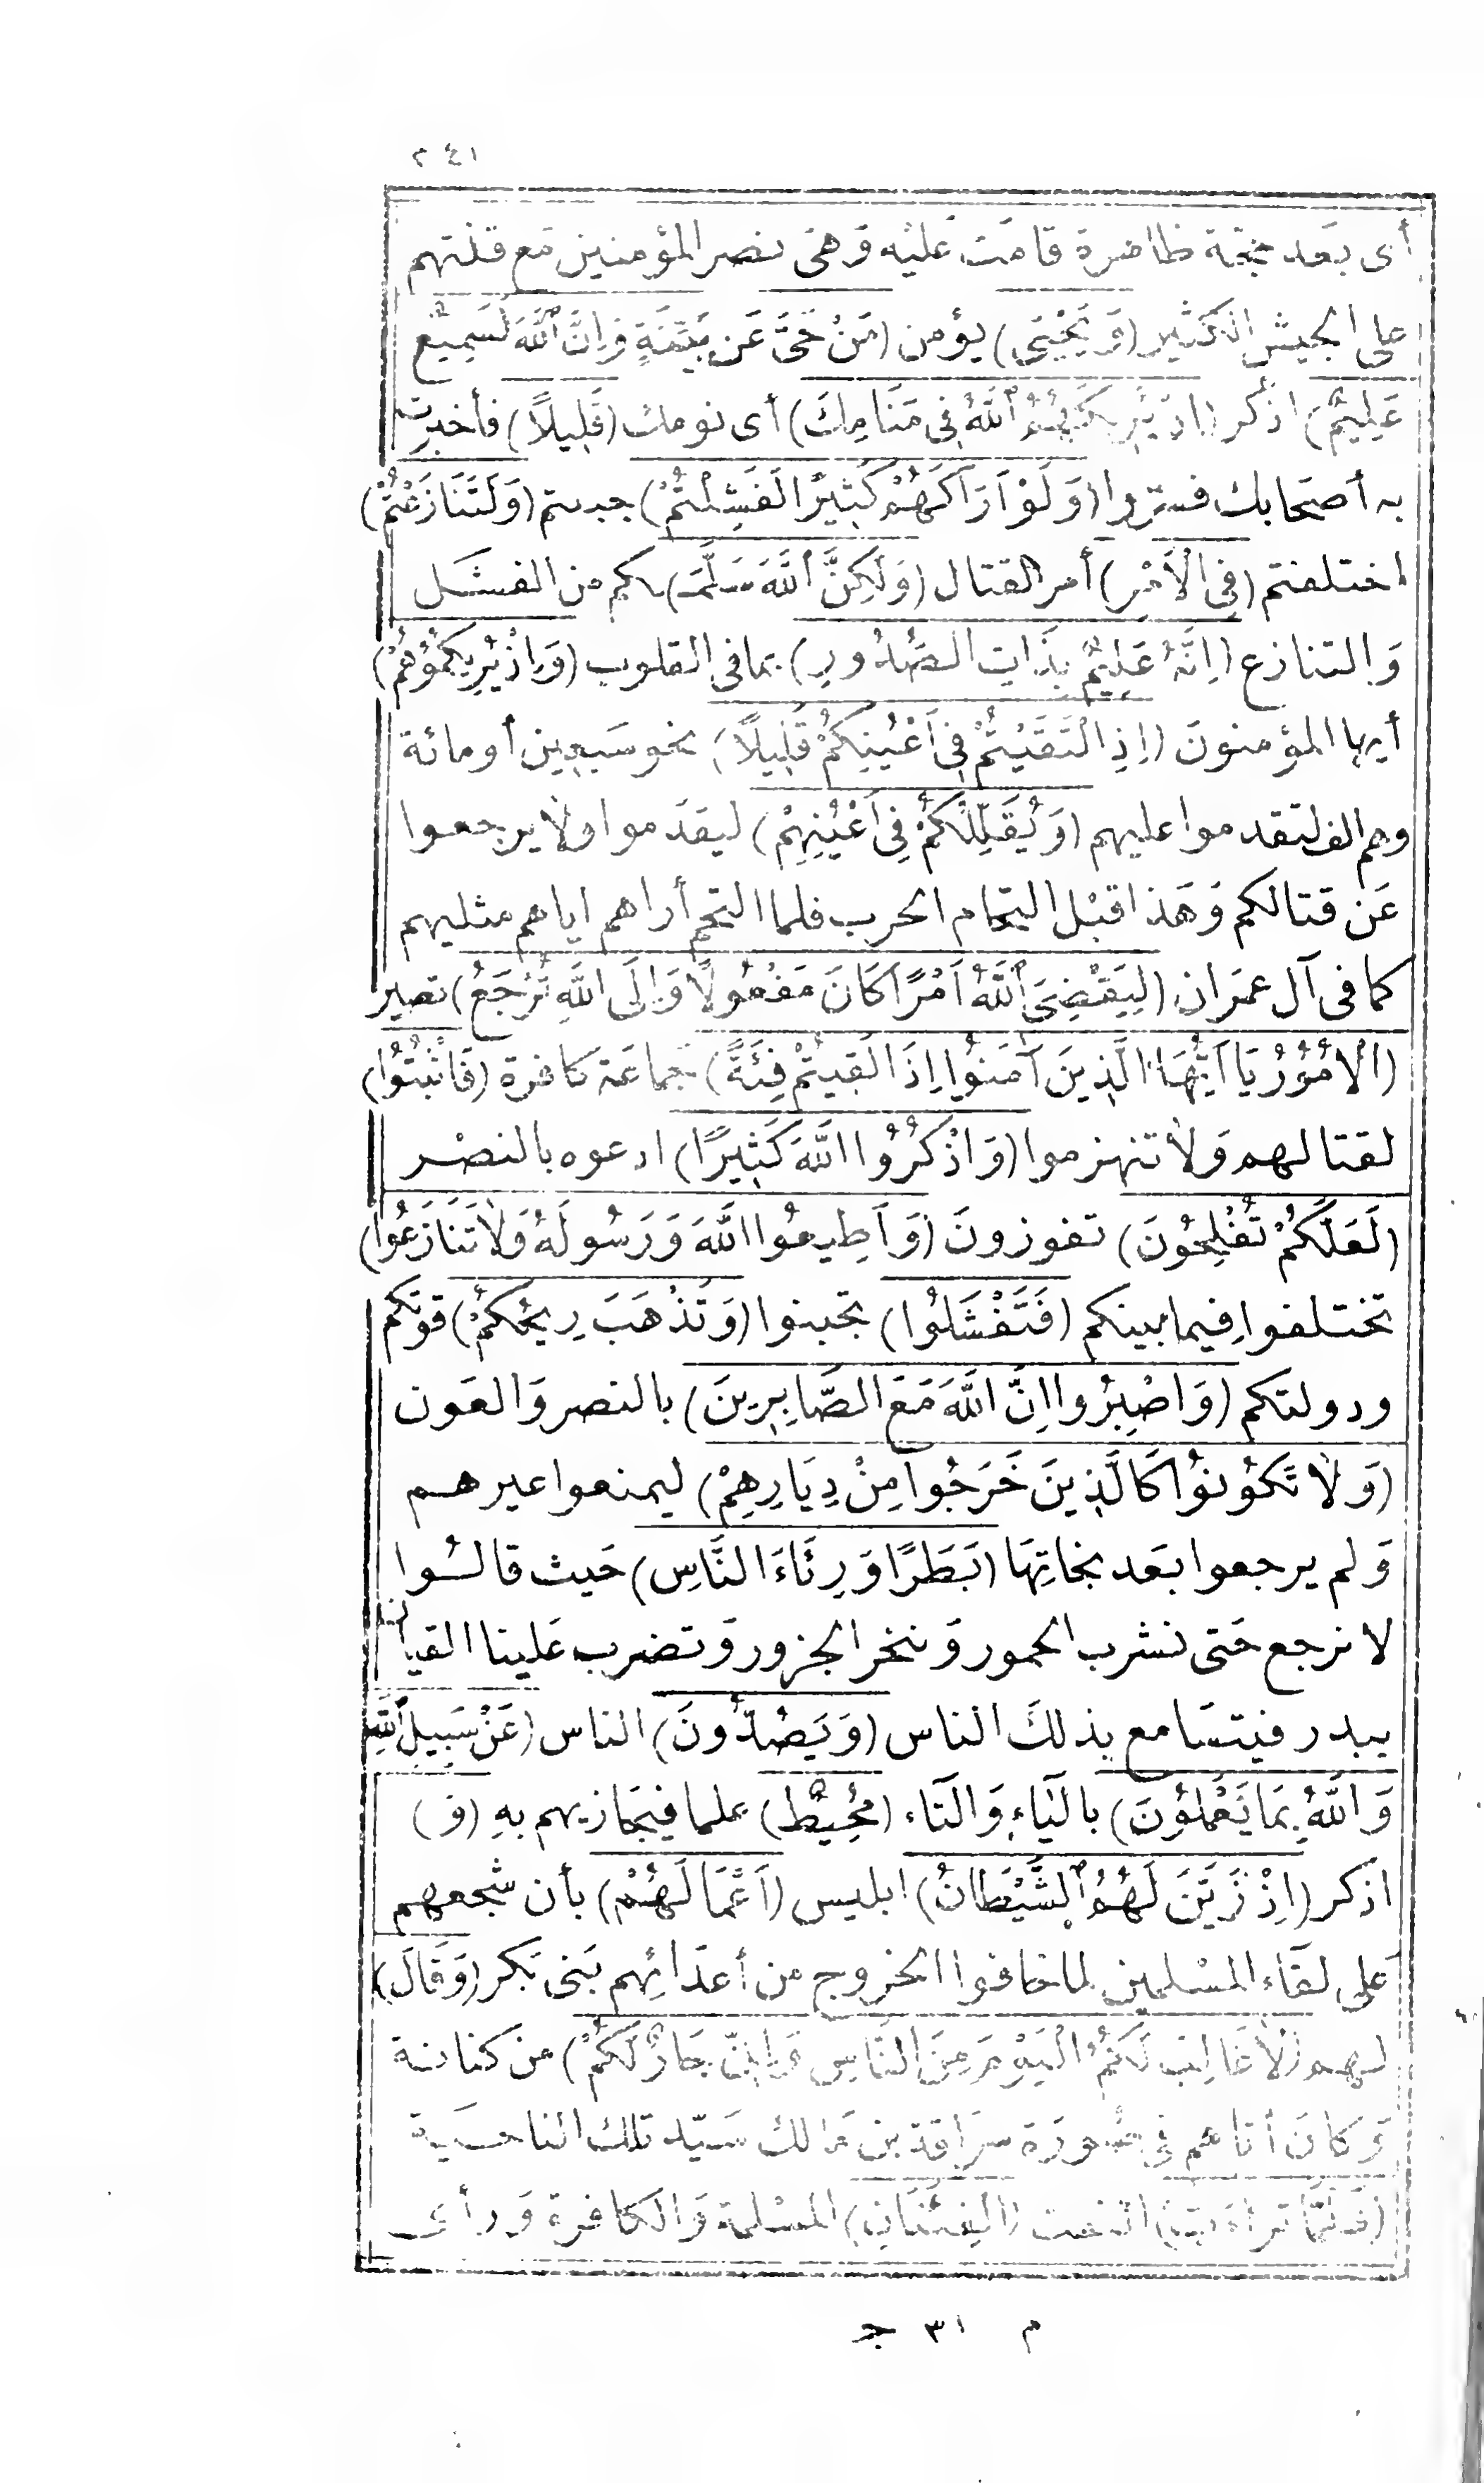 ٢٤١
أى بَعد حجّة ظاهرة قامَت عَليْه وَهىَ نصر المؤمنين مَع قلتهم
على الجيش الكثير (وَيَحْيَى) يؤمن (مَنْ حَىَّ عَن بَيِّنَةٍ وَاِنَّ ٱللَّهَ لَسَمِيعٌ
عَلِيمٌ) اذكر (اِذْ يُرِيكَهُمُ ٱللَّهُ فِى مَنَامِكَ) أى نومك (قَلِيلاً) فأخبرت
به أصحَابك فسرّوا (وَلَوْ اَرَاكَهُمْ كَثِيرًا لَفَشِلْتُمْ) جبنتم (وَلَتَنَازَعْتُمْ)
اختلفتم (فِى الْاَمْرِ) أمر القتال (وَلَكِنَّ ٱللَّهَ سَلَّمَ) ـكم من الفشَل
وَالتنازع (اِنَّهُ عَلِيمٌ بِذَاتِ الصُّدُورِ) بما فى القلوب (وَاِذْ يُرِيكُمُوُهُمْ)
أيها المؤمنونَ (اِذِ الْتَقَيْتُمْ فِى اَعْيُنِكُمْ قَلِيلاً) نحو سَبعين أو مائة
وهم الف لتقدموا عليهم (وَيُقَلِّلُكُمْ فِى اَعْيُنِهِمْ) ليقدَموا ولا يرجعوا
عَن قتالكم وَهَذا قبْل التحَام الحرب فلما التحم أراهم اياهم مثليهم
كما فى آل عمرَان (لِيَقْضِىَ ٱللَّهُ اَمْرًا كَانَ مَفْعُولاً وَاِلَى اللَّهِ تُرْجَعُ) تصير
(الْاُمُوُرُ يَا اَيُّهَا الَّذِينَ آمَنُوا اِذَا لَقِيتُمْ فِئَةً) جماعَة كافرة (فَاثْبُتُوا)
لقتالهم وَلا تنهزموا (وَاذْكُرُوُا اللَّهَ كَثِيرًا) ادعوه بالنصْر
(لَعَلَّكُمْ تُفْلِحُونَ) تفوزونَ (وَاَطِيعُوا اللَّهَ وَرَسُولَهُ وَلاَ تَنَازَعُوا)
تختلفوا فِيما بينكم (فَتَفْشَلُوا) تجبنوا (وَتَذْهَبَ رِيحُكُمْ) قوّتكم
ودولتكم (وَاصْبِرُوا اِنَّ اللَّهَ مَعَ الصَّابِرِينَ) بالنصر وَالعَون
(وَلاَ تَكُوُنوُا كَالَّذِينَ خَرَجُوا مِنْ دِيَارِهِمْ) ليمنعوا عيرهم
وَلم يرجعوا بعَد نجاتِهَا (بَطَرًا وَرِئَاءَ النَّاسِ) حَيث قالُوا
لا نرجع حَتى نشرب الخمور وَننحر الجزور وَتضرب عَلينا القيان
ببدر فيتسَامع بذلكَ الناس (وَيَصُدُّونَ) الناس (عَنْ سَبِيلِ ٱللَّهِ
وَاللَّهُ بِمَا يَعْمَلُوُنَ) باليَاءِ وَالتَاء (مُحِيطٌ) علما فيجَازيهم بهِ (وَ)
اذكر (اِذْ زَيَّنَ لَهُمُ ٱلشَّيْطَانُ) ابليس (اَعْمَالَهُمْ) بأن شجّعهم
عَلى لقاء المسْلمين لما خافوا الخروج من أعدَائهم بَنى بَكر (وَقَالَ)
لهم (لاَ غَالِبَ لَكُمُ الْيَوْمَ مِنَ النَّاسِ وَاِنِّى جَارٌ لَكُمْ) من كنانة
وَكانَ أتاهم فى صُورَة سرَاقة بن مَالك سَيّد تلك الناحيَة
(فَلَمَّا تَرَاءَتِ) التقت (الْفِئَتَانِ) المسْلمة وَالكافرة وَرأى
م ٣١ جـ